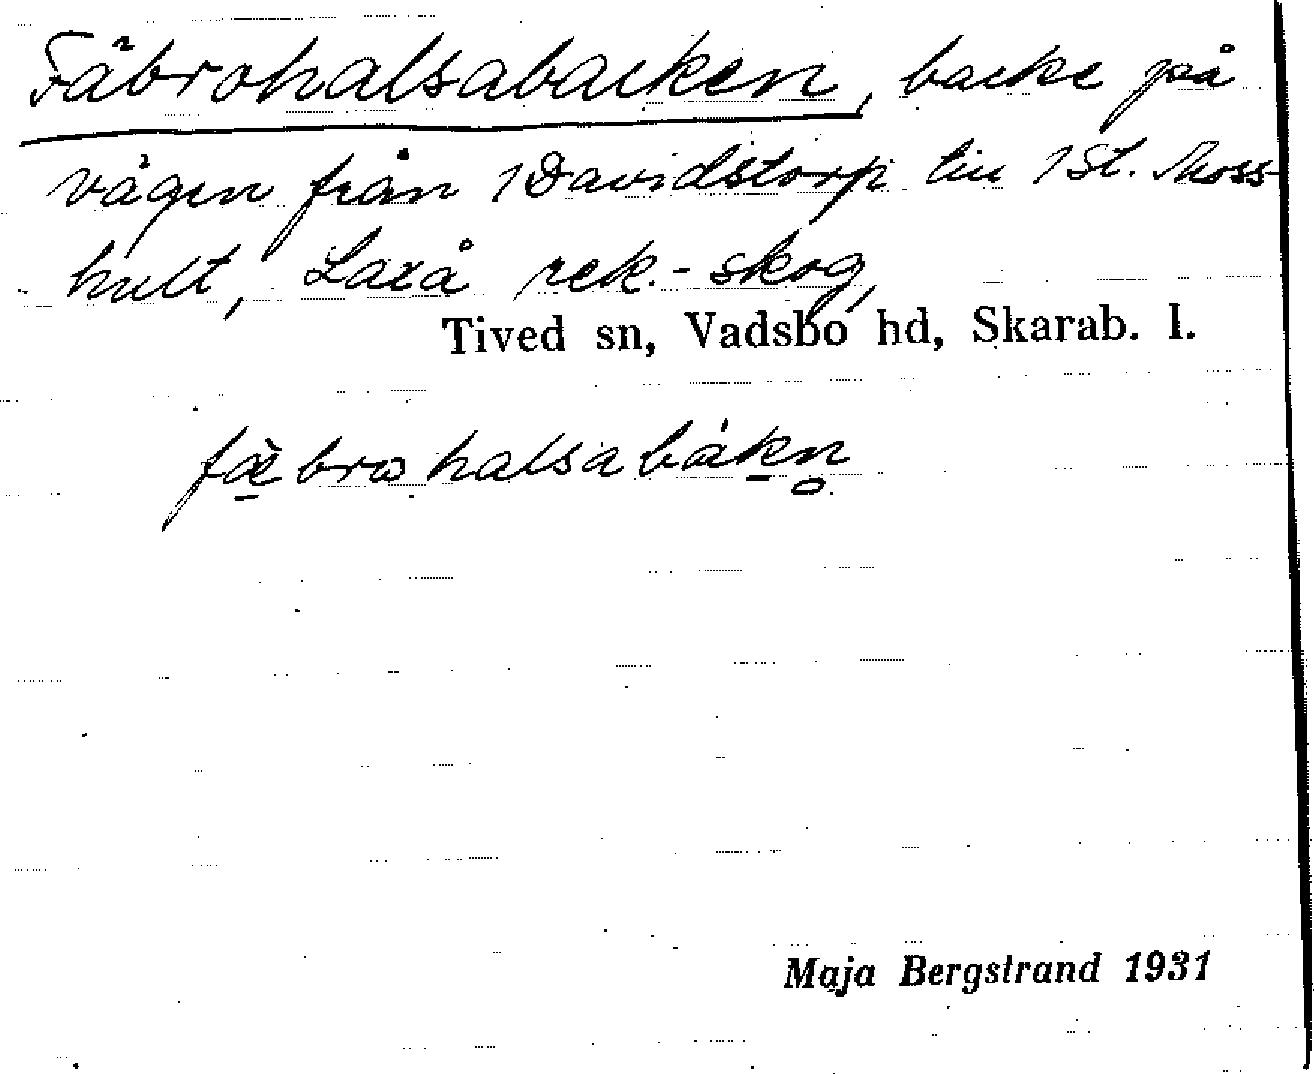 Fäbrohalsabacken, backe på
vägen från 1Davidstorp till 1St. Moss-
hult, Laxå rek.-skog,
Tived sn, Vadsbo hd, Skarab. l.
Maja Bergstrand 1931